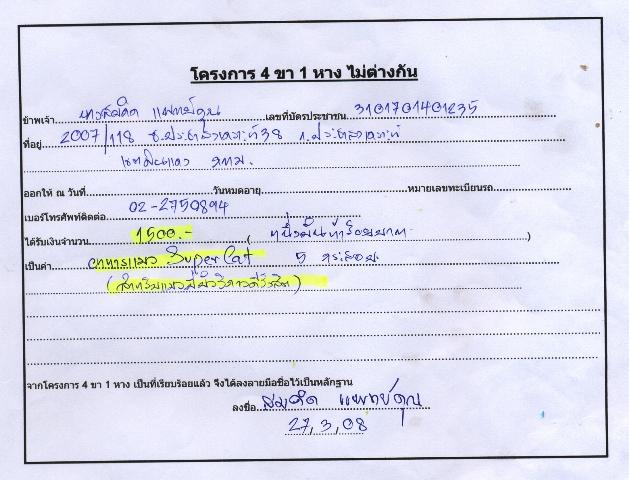 โครงการ 4 ขา 1 หาง ไม่ต่างกัน
ข้าพเจ้า นายสมคิด แพทย์คุณ เลขที่บัตรประชาชน 3101701401235
ที่อยู่ 2007/118 ซ.ประชาสงเคราะห์ 38 ถ.ประชาสงเคราะห์
เขตดินแดง กทม.
ออกให้ ณ วันที่ วันหมดอายุ หมายเลขทะเบียนรถ
เบอร์โทรศัพท์ติดต่อ 02-2750894
ได้รับเงินจำนวน 1500.- ( หนึ่งพันห้าร้อยบาท )
เป็นค่า อาหารแมว SuperCat 5 กระสอบ
(สำหรับแมว
จากโครงการ 4 ขา 1 หาง เป็นที่เรียบร้อยแล้ว จึงได้ลงลายมือชื่อไว้เป็นหลักฐาน
ลงชื่อ สมคิด แพทย์คุณ
27,3,08